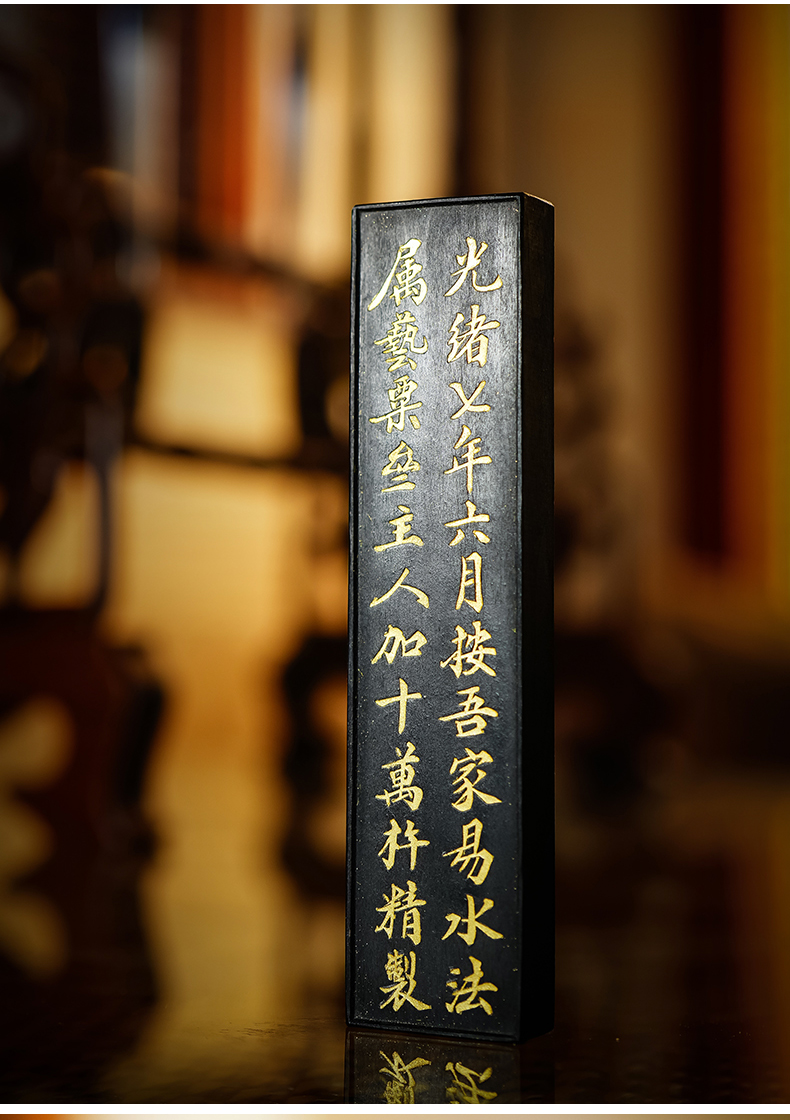 光緒七年六月按吾家易水法
属藝粟叄主人加十萬杵精製